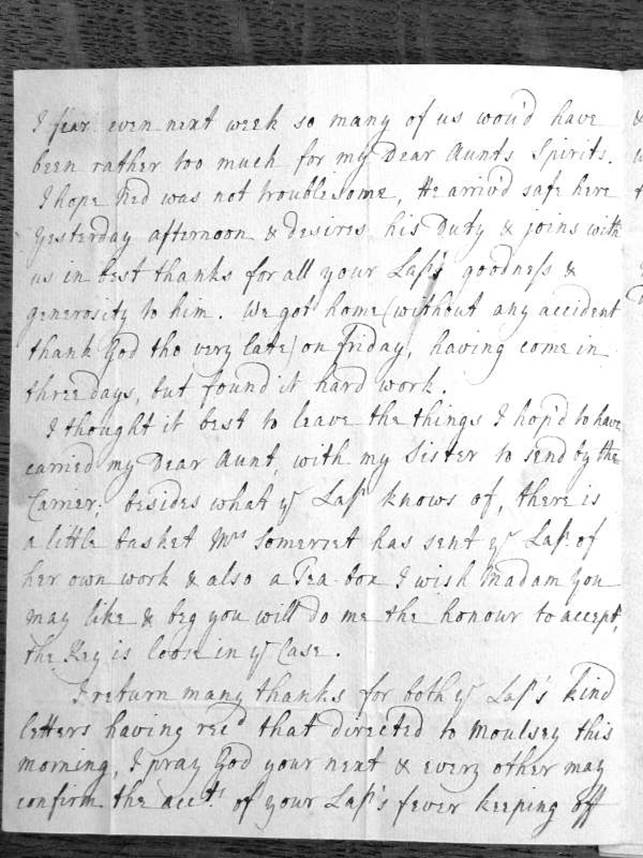 I fear even next week so many of us wou'd have
been rather too much for my Dear Aunts Spirits.
I hope Ned was not troublesome, He arriv'd safe here
Yesterday afternoon & desires his Duty & joins with
us in best thanks for all your Lasp's goodness &
generosity to him. We got home (without any accident
thank God tho very late) on friday, having come in
three days, but found it hard work.
I thought it best to leave the things I hop'd to have
carried my Dear Aunt, with my Sister to send by the
Carrier; besides what yr Lasp knows of, there is
a little basket Mrs Somerset has sent yr Lasp. of
her own work & also a Tea-box I wish Madam you
may like & beg you will do me the honour to accept,
the Key is loose in ye Case.
I return many thanks for both yr Lasp's kind
letters having recd that directed to Moulsey this
morning, I pray God your next & every other may
confirm the acct. of your Lasp's fever keeping off